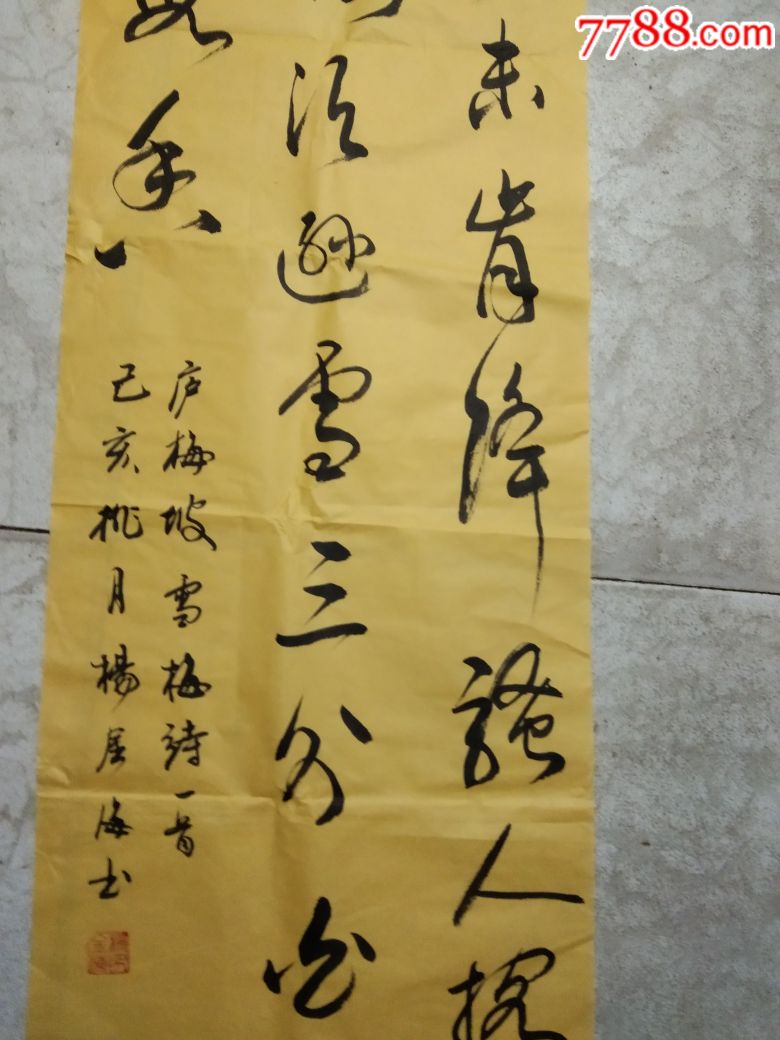 7788.com
未肯降骚人搁
须逊雪三分白
段香
庐梅坡雪梅诗一首
己亥桃月楊居海书